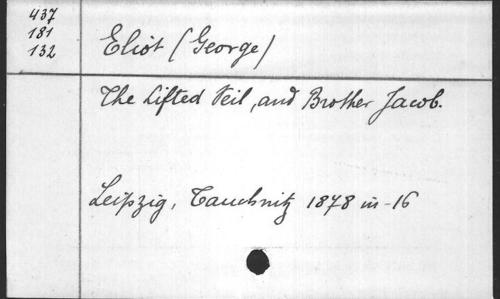 437
181
132
Eliot (George)
The Lifted Veil, and Brother Jacob.
Leipzig, Tauchnitz 1878 in-16